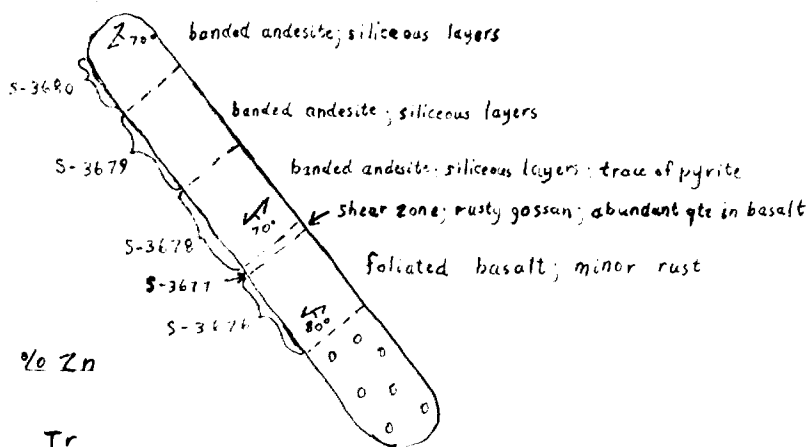 70° banded andesite; siliceous layers
S-3680
banded andesite; siliceous layers
S-3679
banded andesite; siliceous layers; trace of pyrite
70°
shear zone; rusty gossan; abundant qtz in basalt
S-3678
foliated basalt; minor rust
S-3677
S-3676
80°
% Zn
Tr